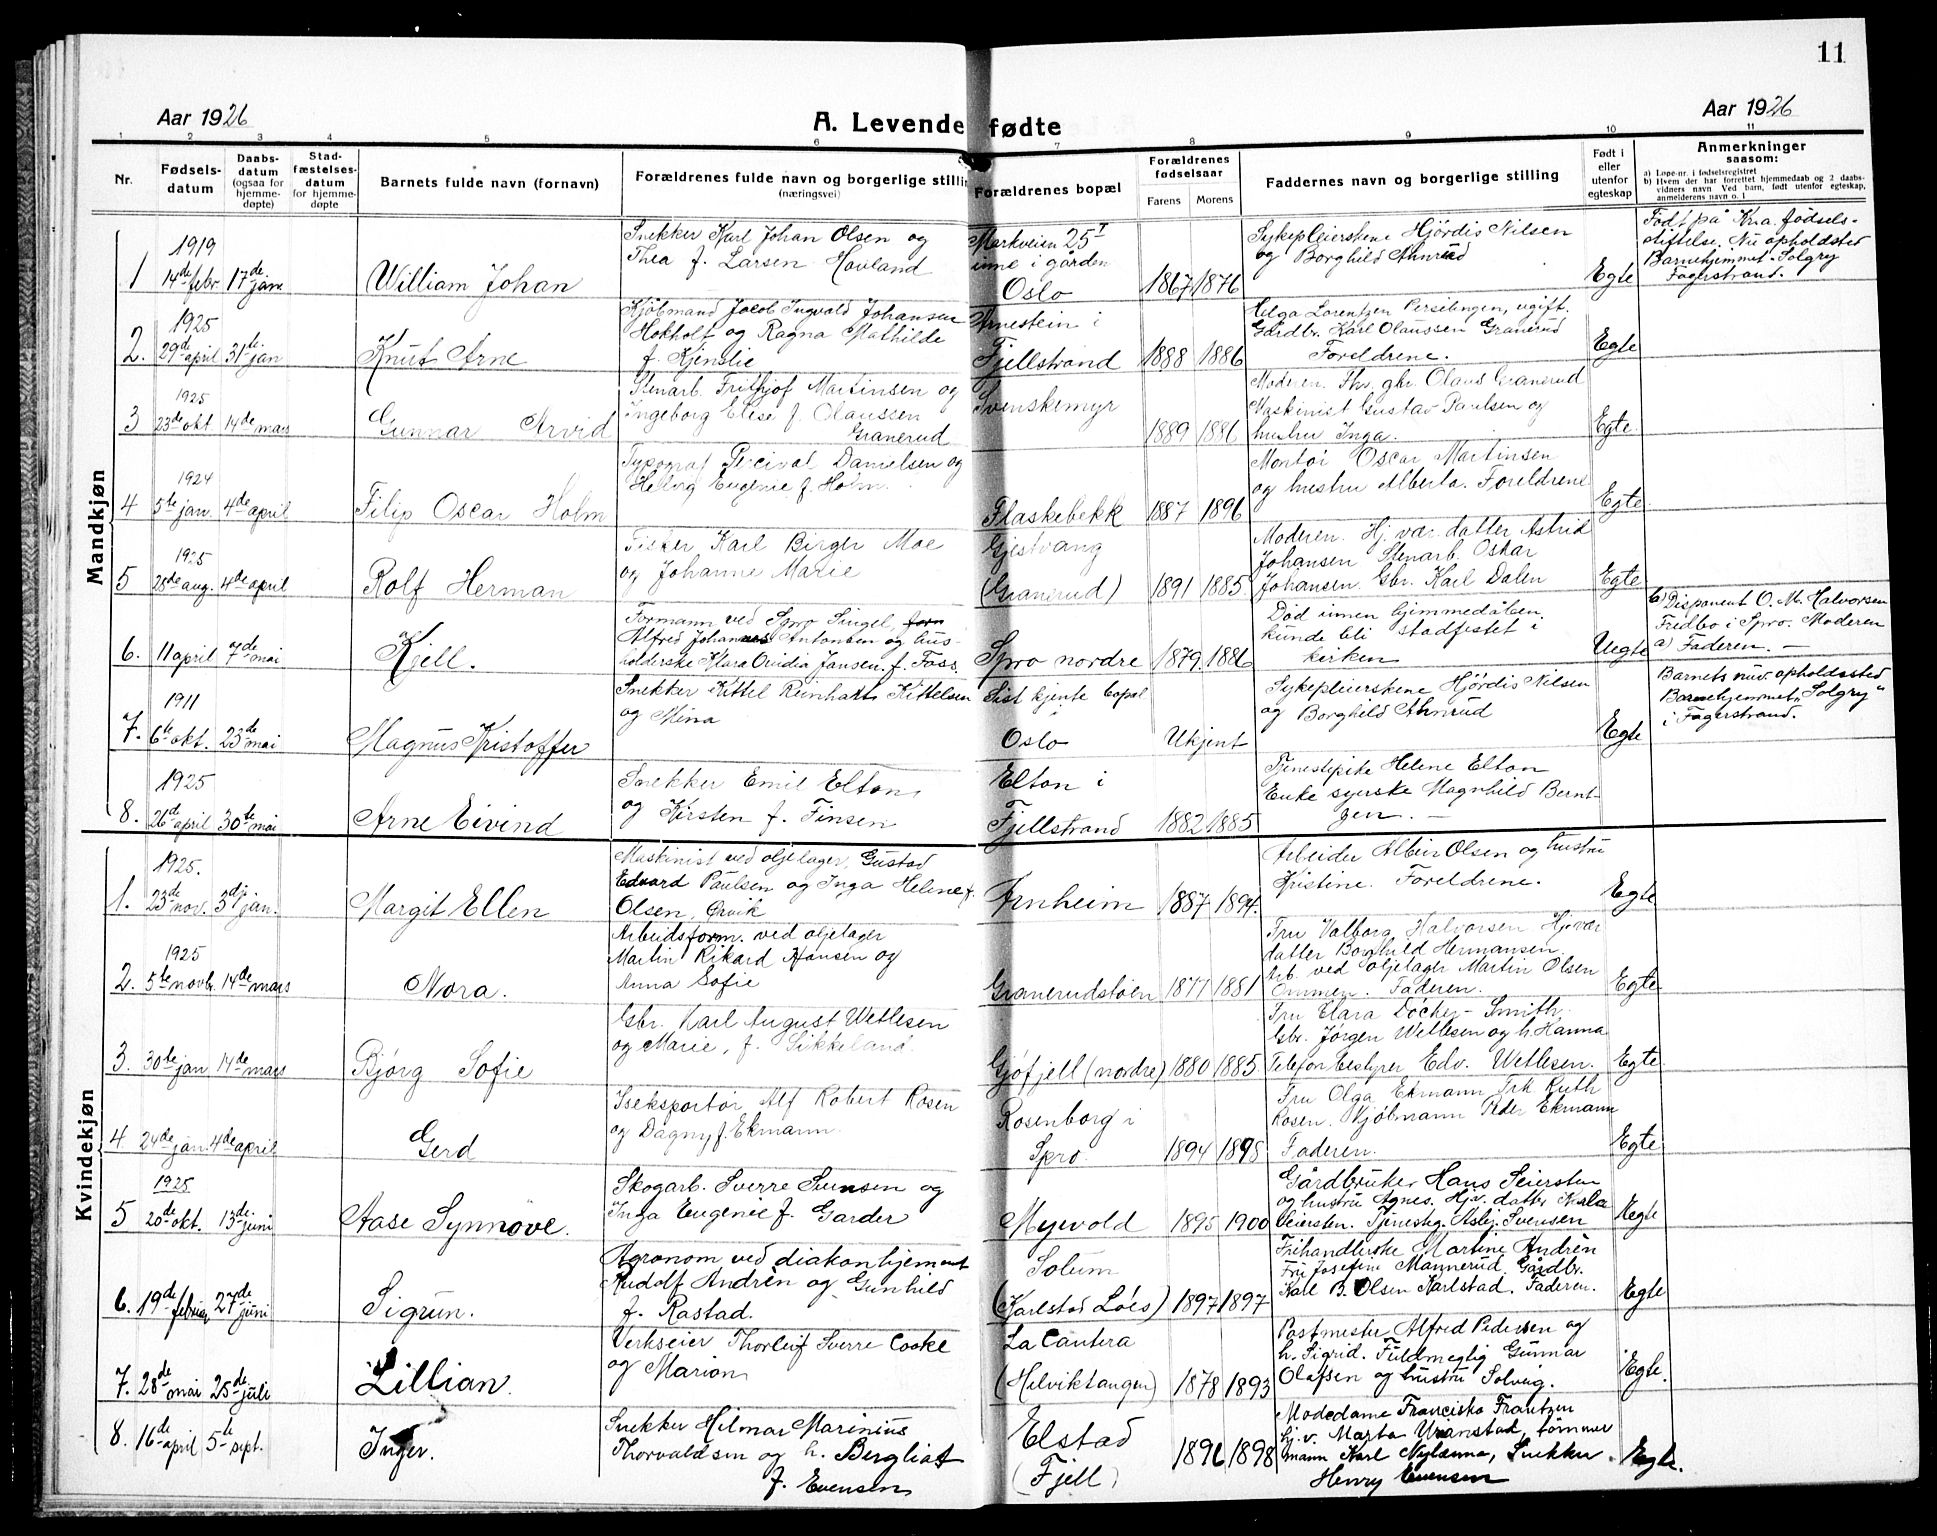 11
Aar 1926
A. Levende fødte
Aar 1926
1 2 3 4 5 6 7 8 9 10 11
Nr.
Fødsels-
datum
Daabs-
datum
(ogsaa for
hjemme-
døpte)
Stad-
fæstelses-
datum
for hjemme-
døpte
Barnets fulde navn (fornavn)
Forældrenes fulde navn og borgerlige stillin
(næringsvei)
Forældrenes bopæl
Forældrenes
fødselsaar
Farens
Morens
Faddernes navn og borgerlige stilling
Født i
eller
utenfor
egteskap
Anmerkninger
saasom:
a) Løpe-nr. i fødselsregistret
b) Hvem der har forrettet hjemmedaab og 2 daabs-
vidners navn Ved barn, født utenfor egteskap,
anmelderens navn o. l
Mandkjøn
1
1919
14de febr.
17de jan
William Johan
Snekker Karl Johan Olsen og
Thea f. Larsen Hovland
Markveien 25 I
inne i gården
Oslo
1867
1876
Sykepleierskene Hjördis Nilsen
og Borghild Ahnrud
Egte
Født på Kra. fødsels-
stiftelse. Nu opholdsted
Barnehjemmet Solgry
Fagerstrand.
2.
1925
29de april
31te jan
Knut Arne
Kjöbmand Jacob Ingvald Johansen
Hokholt og Ragna Mathilde
f. Kjenslie
Arnestein i
Fjellstrand
1888
1886
Helga Lorentzen Persilengen, ugift.
Gårdbr. Karl Olaussen Granerud
Foreldrene.
Egte
3
1925
23de okt.
14de mars
Gunnar Arvid
Stenarb. Frithjof Martinsen og
Ingeborg Elise f. Olaussen
Granerud
Svenskemyr
1889
1886
Moderen. Thv. gbr. Olaus Granerud
Maskinist Gustav Paulsen og
hustru Inga.
Egte
4
1924
5te jan.
4de april
Filip Oscar Holm
Typograf Percival Danielsen og
Helvig Eugenie f. Holm.
Flaskebekk
1887
1896
Montör Oscar Martinsen
og hustru Alberta. Foreldrene
Egte
5
1925
28de aug.
4de april
Rolf Herman
Fisker Karl Birger Moe
og Johanne Marie
Gjestvang
(Granerud)
1891
1885
Moderen. Hj. vær. datter Astrid
Johansen Stenarb. Oskar
Johansen. Gbr. Karl Dalen
Egte
6.
11 april
7de mai
Kjell.
Formann ved Spro Singel,
Alfred Johannes Antonsen og hus-
holderske Klara Ovidia Jansen. f. Foss
Spro nordre
1879
1886
Död innen hjemmedåben
kunde bli stadfestet i
kirken
Uegte
b) Disponent O. M. Halvorsen
Fredbo i Spro. Moderen
a) Faderen. —
7.
1911
6te okt.
23de mai
Magnus Kristoffer
Snekker Kittel Reinhart Kittelsen
og Mina
Sist kjente bopæl
Oslo
Ukjent
Sykepleierskene Hjördis Nilsen
og Borghild Ahnrud
Egte
Barnets nuv. opholdssted
Barnehjemmet „Solgry"
i Fagerstrand.
8.
1925
26de april
30te mai
Arne Eivind
Snekker Emil Elton
og Kirsten f. Finsen
Elton i
Fjellstrand
1882
1885
Tjenestepike Helene Elton
Enke syerske Magnhild Bernt-
zen. —
Kvindekjøn
1.
1925.
23de nov.
3dje jan.
Margit Ellen
Maskinist ved oljelager. Gustav
Edvard Paulsen og Inga Helene f.
Olsen, Ørvik
Arnheim
1887
1894.
Arbeider Albin Olsen og hustru
Kristine. Foreldrene.
Egte
2.
1925
5te novbr.
14de mars
Nora.
Arbeidsform. ved oljelager
Martin Rikard Hansen og
Anna Sofie
Granerudstöen
1877
1881
Fru Valborg Halvorsen Hj.vær.
datter Borghild Hermansen
Arb. ved oljelager Martin Olsen
Ommen. Faderen.
Egte
3.
30te jan
14de mars
Bjørg Sofie
Gbr. Karl August Wetlesen
og Marie, f. Sikkeland.
Gjöfjell (nordre)
1880
1885
Fru Clara Döcker-Smith.
Gbr. Jørgen Wetlesen og h. Hanna
Telefonbestyrer Edv. Wetlesen.
Egte
4.
24de jan
4de april
Gerd
Iseksportör Alf Robert Rosen
og Dagny f. Ekmann
Rosenborg i
Spro
1894
1898
Fru Olga Ekmann Frk Ruth
Rosen. Kjöbmann Peder Ekmann
Faderen.
Egte
5
1925
20de okt.
13de juni
Aase Synnöve.
Skogarb. Sverre Svensen og
Inga Eugenie f. Garder
Myrvold
1895
1900
Gårdbruker Hans Seiersten
og hustru Agnes. Hjv. datter
Seiersten. Tjenesteg. Asbj. Svensen
Egte
6.
19de februar
27de juni
Sigrun.
Agronom ved diakonhjemmet
Rudolf Andrén og Gunhild
f. Rastad.
Solum
(Karlstad Löes)
1897
1897
Frihandlerske Martine Andrén
Fru Josefine Mannerud. Gårdbr.
Karl B. Olsen Karlstad. Faderen.
Egte
7.
28de mai
25de juli
Lillian.
Verkseier Thorleif Sverre Cooke
og Marion
La Cantera
(Helviktangen)
1878
1893
Postmester Alfred Pedersen og
h. Sigrid. Fuldmegtig Gunnar
Olafsen og hustru Solveig.
Egte.
8.
16de april
5te sept.
Inger.
Snekker Hilmar Marinius
Thorvaldsen og h. Bergliot
f. Evensen
Elstad
(Fjell)
1896
1898
Modedame Franciska Frantzen
hj.v. Marta Uranstad, tömmer
mann Karl Nylænna, Snekker
Henry Evensen
Egte.